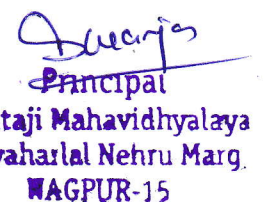 Principal
taji Mahavidhyalaya
vaharlal Nehru Marg.
NAGPUR-15